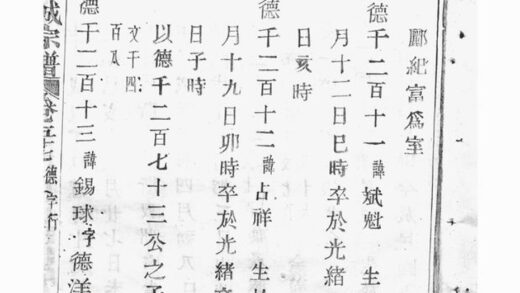 酈紀富爲室
德千二百十一諱斌魁 生
月十二日巳時卒於光緒
日亥時
德千二百十二諱占祥 生
月十九日卯時卒於光緒
日子時
以德千二百七十三公之子
文千四
百瓜
德千二百十三諱錫球字德洋
宗譜 德字行